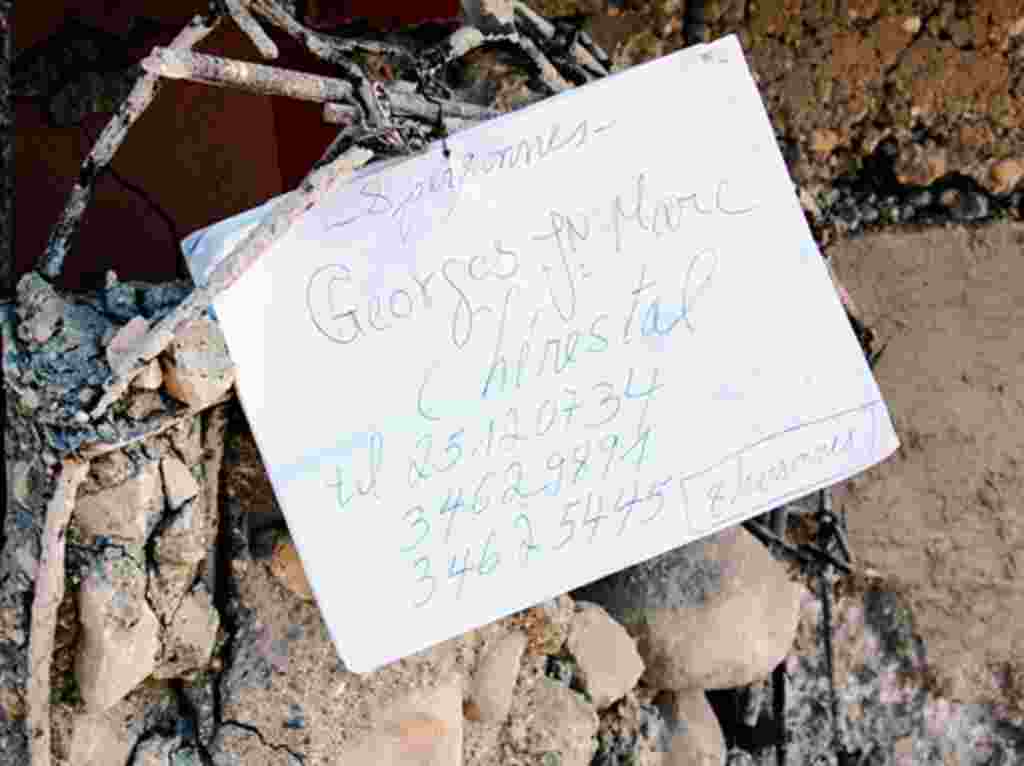 8 personnes
Georges Jn. Marc
Chérestal
tel 25.120734
34629891
34625445 8 personnes